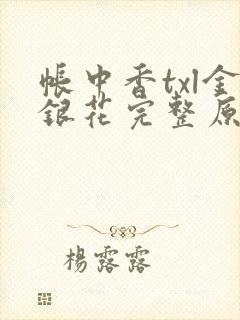 帳中香txl金
銀花完整原
楊露露